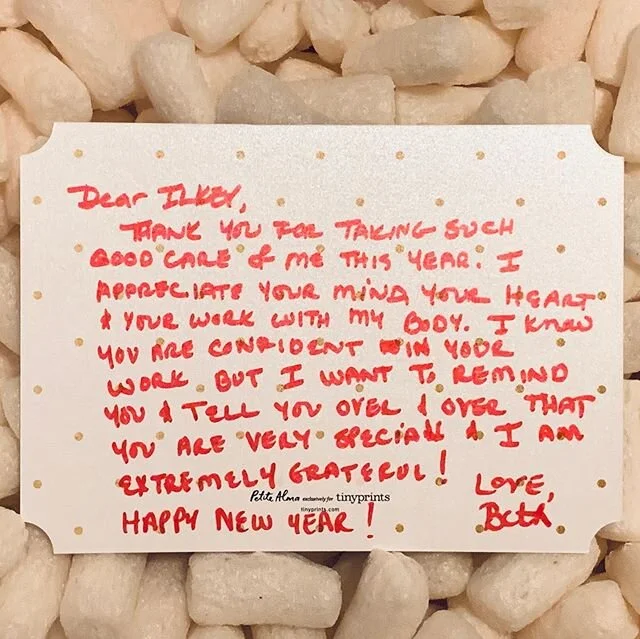 Dear ILKEY,
THANK YOU FOR TAKING SUCH
GOOD CARE of ME THIS YEAR. I
APPRECIATE YOUR MIND YOUR HEART
& YOUR WORK WITH MY BODY. I KNOW
YOU ARE CONFIDENT IN YOUR
WORK BUT I WANT TO REMIND
YOU & TELL YOU OVER & OVER THAT
YOU ARE VERY SPECIAL & I AM
EXTREMELY GRATEFUL!
Petite Alma exclusively for tinyprints
tinyprints.com
HAPPY NEW YEAR!
LOVE,
Beth